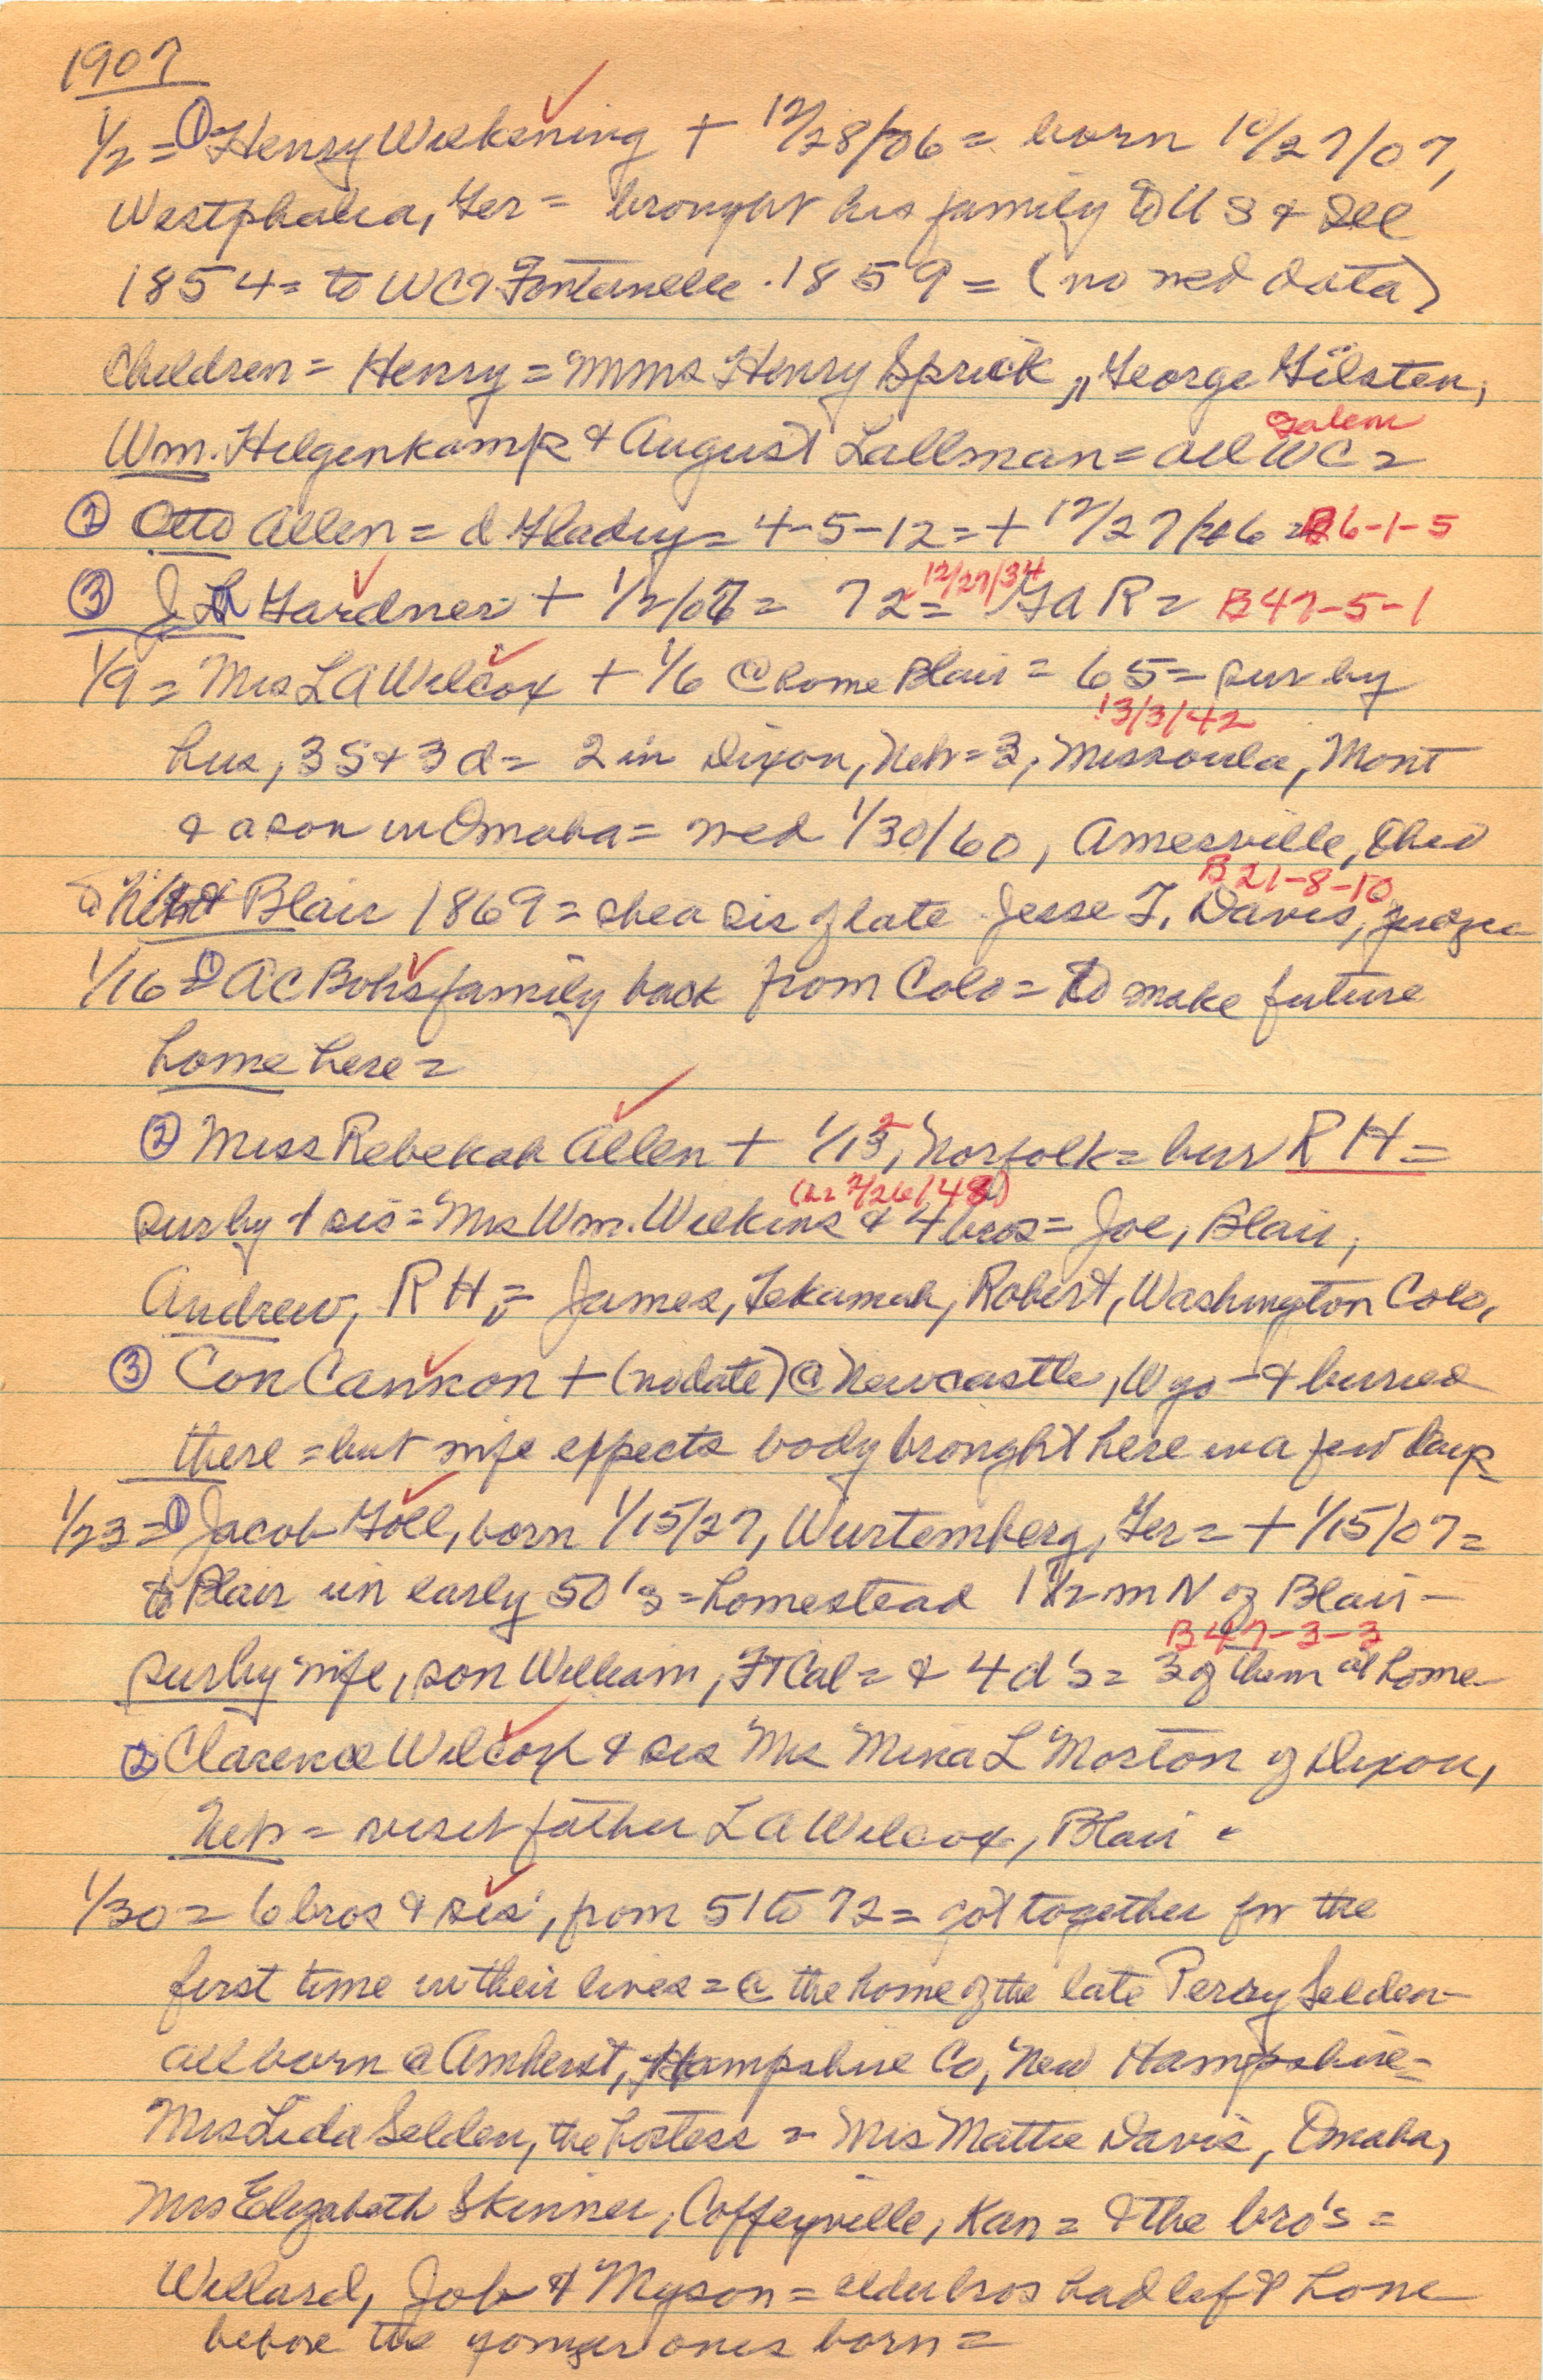 1907
1/2 = ① Henry Wilkening + 12/28/06 = born 10/27/07,
Westphalia, Ger = brought his family to U S & Ill
1854 = to WC, Fontanelle. 1859 = (no med data)
Children = Henry = Mmes Henry Sprick, George Gilsten,
Salem
Wm. Hilgenkamp & August Lallman = all WC =
② Otto Allen = d Gladys = 4-5-12 = + 12/27/06 = B6-1-5
12/27/34
③ J H Gardner + 1/2/07 = 72 = G A R = B47-5-1
1/9 = Mrs L A Wilcox + 1/6 @ home Blair = 65 = sur by
13/3/42
hus, 3 S & 3 d = 2 in Dixon, Neb = 3, Missoula, Mont
& a son in Omaha = med 1/30/60, Amesville, Ohio
B21-8-10
Blair 1869 = she a sis of late Jesse T. Davis, judge
1/16 = ① A C Bohs family back from Colo = to make future
home here =
② Miss Rebekah Allen + 1/12, Norfolk = bur R H =
(br 2/26/48)
sur by 1 sis = Mrs Wm. Wilkins & 4 bros = Joe, Blair,
Andrew, R H, = James, Tekamah, Robert, Washington Colo,
③ Con Cannon + (no date) @ Newcastle, Wyo - & burried
there = but wife expects body brought here in a few days
1/23 = ① Jacob Göll, born 1/15/27, Wurtemberg, Ger = + 1/15/07 =
to Blair in early 50's = homestead 1 1/2 m N of Blair -
B47-3-3
sur by wife, son William, Ft Cal = & 4 d's = 3 of them at home -
② Clarence Wilcox & sis Mrs Mina L Morton of Dixon,
Neb = visit father L A Wilcox, Blair -
1/30 = 6 bros & sis', from 51 to 72 = got together for the
first time in their lives = @ the home of the late Perry Selden -
all born @ Amherst, Hampshire Co, New Hampshire =
Mrs Lida Selden, the hostess = Mrs Mattie Davis, Omaha,
Mrs Elizabeth Skinner, Coffeyville, Kan = & the bro's =
Willard, Job & Myson = elder bros had left home
before the younger ones born =